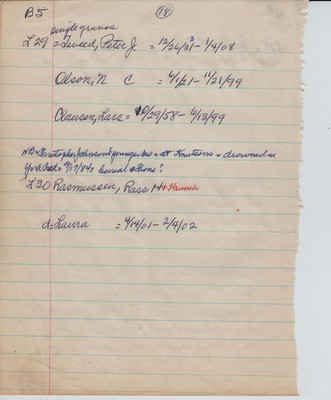 B5 (18)
single graves
L29 = Tweed, Peter J = 12/26/31 - 1/4/08
Olson, N C = 4/1/21 - 11/21/99
Clausen, Lars = 10/29/58 - 6/13/99
NB = Christopher Johnson + younger bro = at Knutsons + drowned in
York Oak = 9/17/84; burial ? !
L30 Rasmussen, Rass H + Hannah
d = Laura = 4/14/01 - 2/4/02